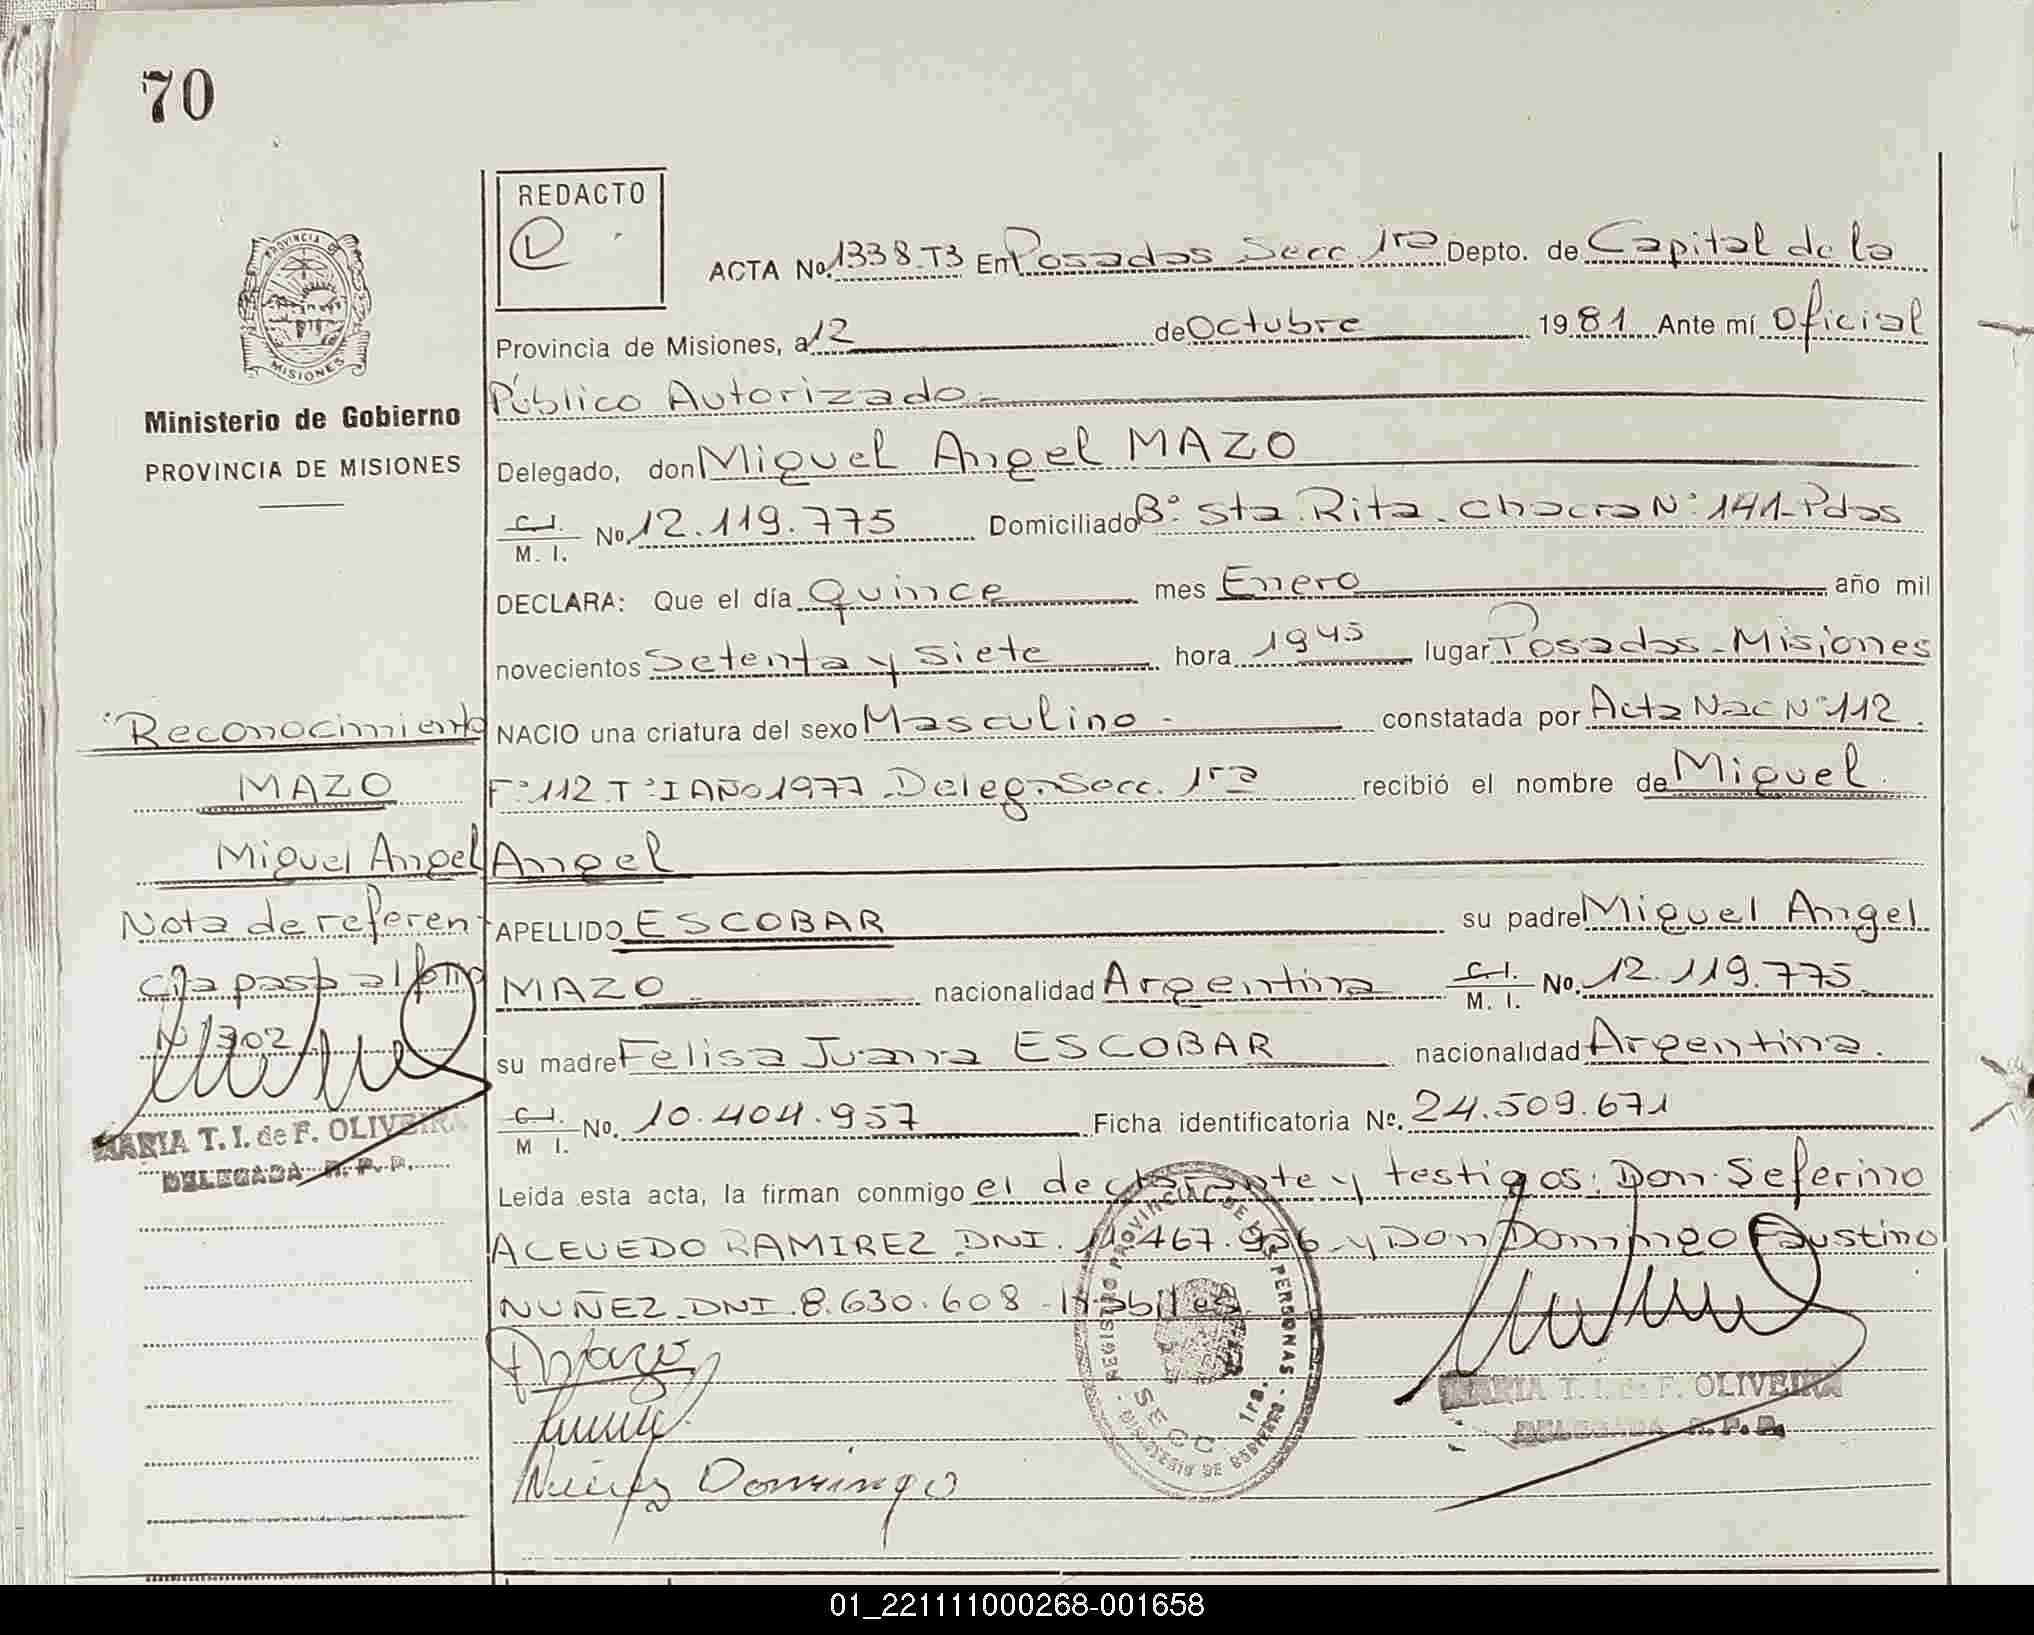 70
REDACTO
ACTA No. 1338-T3 En Posadas Secc. 1ra Depto. de Capital de la
Provincia de Misiones, a 12 de Octubre 1981 Ante mí Oficial
Público Autorizado.-
Delegado, don Miguel Angel MAZO
C.I. M. I. No. 12.119.775 Domiciliado Bº Sta. Rita. Chacra Nº 141-Pdas
DECLARA: Que el día Quince mes Enero año mil
novecientos Setenta y Siete hora 1945 lugar Posadas-Misiones
NACIO una criatura del sexo Masculino.- constatada por Acta Nac Nº 112.
Fº 112.TºI AÑO 1977.Deleg.Secc. 1ra recibió el nombre de Miguel.
Angel
APELLIDO ESCOBAR su padre Miguel Angel
MAZO nacionalidad Argentina C.I. M. I. No. 12.119.775.
su madre Felisa Juana ESCOBAR nacionalidad Argentina.
C.I. M I. No. 10.404.957 Ficha identificatoria No. 24.509.671
Leída esta acta, la firman conmigo el declarante y testigos: Don Seferino
ACEVEDO RAMIREZ DNI. y Don Domingo Faustino
NUÑEZ-DNI.8.630.608-Hábiles.
Nuñez Domingo
REGISTRO PROVINCIAL DE LAS PERSONAS
SECC 1ra.
MINISTERIO DE GOBIERNO
MARIA T. I. de F. OLIVEIRA
DELEGADA R. P. P.
PROVINCIA DE
MISIONES
Ministerio de Gobierno
PROVINCIA DE MISIONES
Reconocimiento
MAZO
Miguel Angel
Nota de referen
cia pasa al fono
Nº 302
MARIA T. I. de F. OLIVEIRA
DELEGADA R. P. P.
01_221111000268-001658